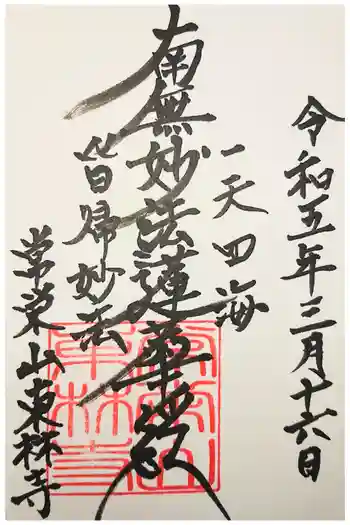 令和五年三月十六日
一天四海
南無妙法蓮華経
皆帰妙法
常栄山東林寺